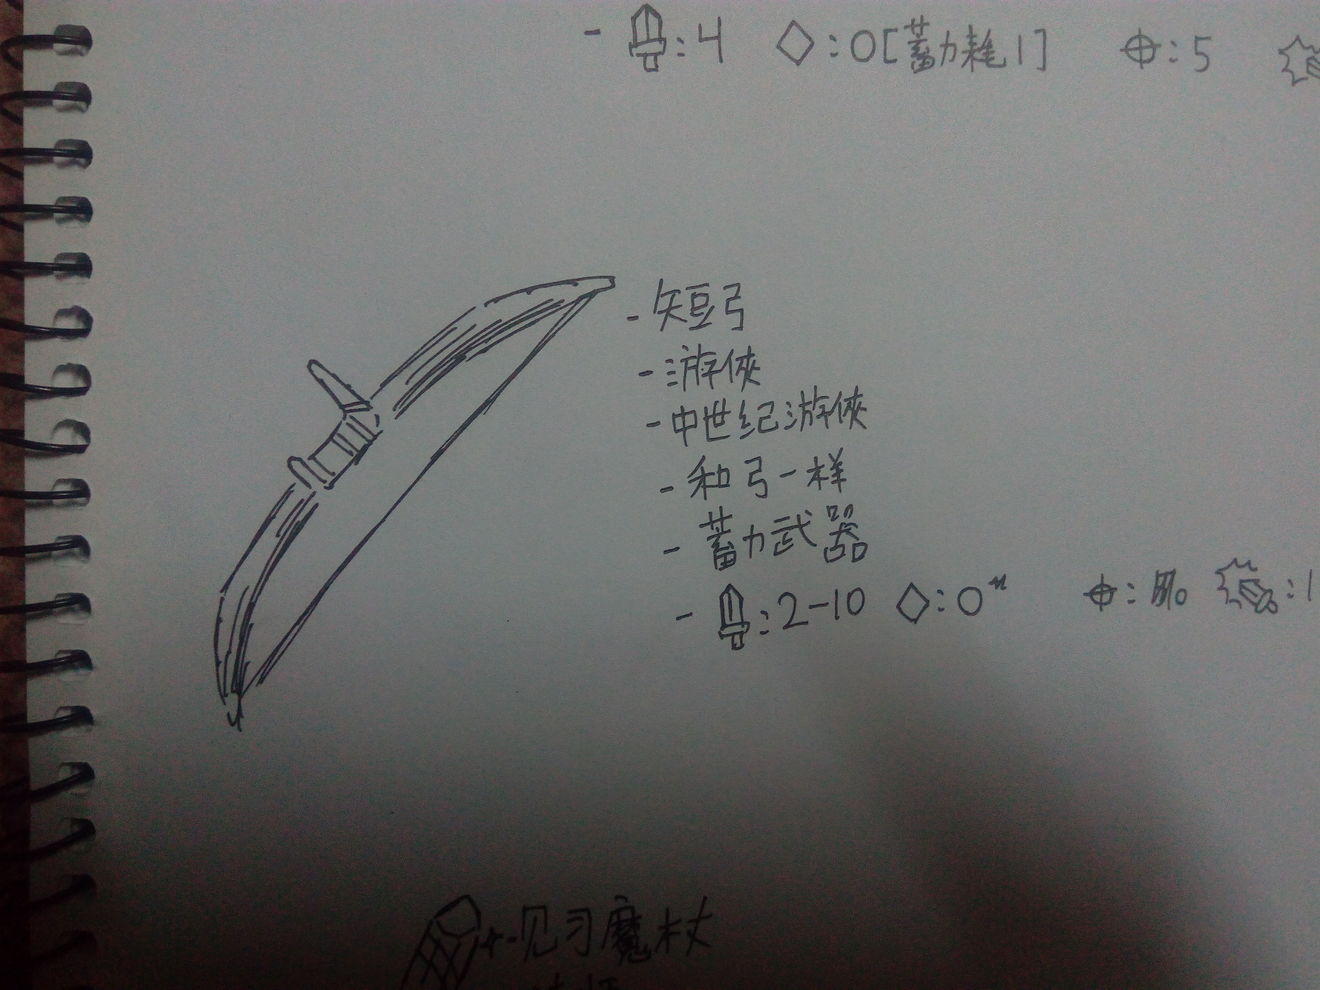 - : 4 ◇ : 0 [蓄力耗1] ⊕ : 5
- 短弓
- 游侠
- 中世纪游侠
- 和弓一样
- 蓄力武器
- : 2-10 ◇ : 0* ⊕ : : 1
- 见习魔杖